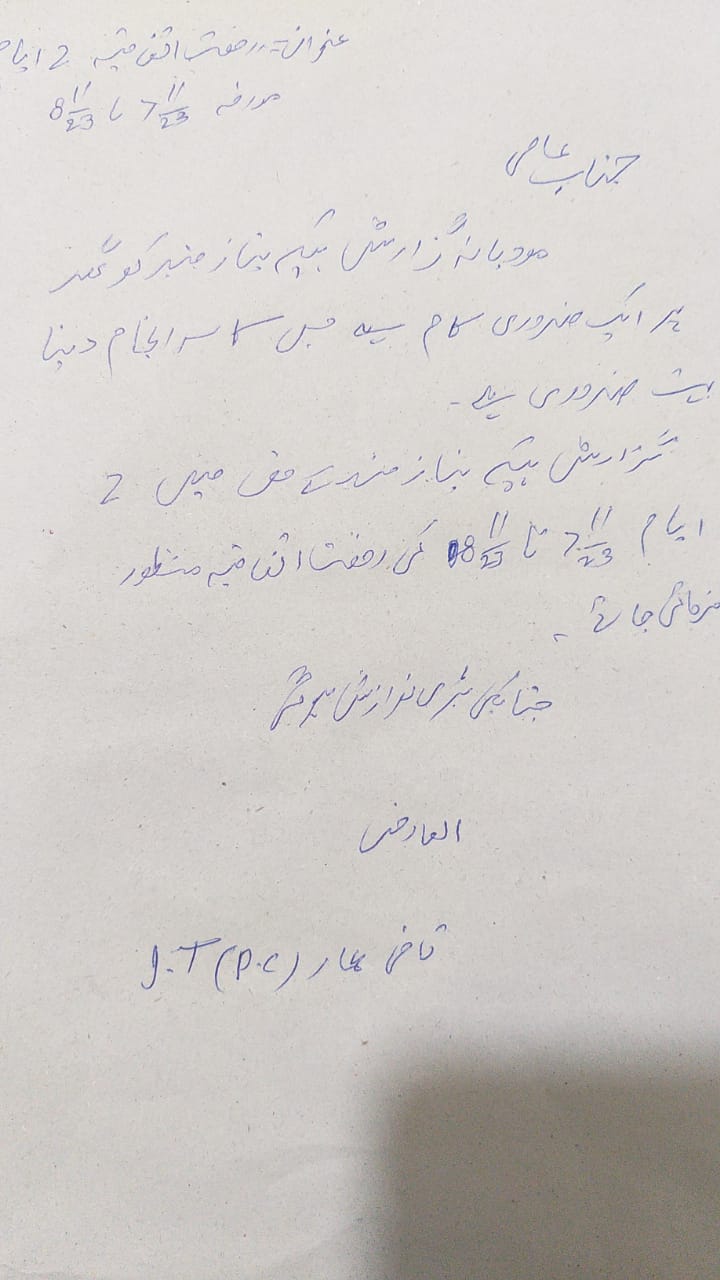 عنوان:۔ رخصت اتفاقیہ 2 ایام
مورخہ 7 11/23 تا 8 11/23
جناب عالی
مودبانہ گزارش ہیکہ نیاز مند کو گھر
پر ایک ضروری کام ہے جس کا سرانجام دینا
بہت ضروری ہے۔
گزارش ہیکہ نیاز مند کے حق میں 2
ایام 7 11/23 تا 8 11/23 کی رخصت اتفاقیہ منظور
فرمائی جائے۔
جناب کی بڑی نوازش ہو گی
العارض
قاضی عمار J.T (P.C)